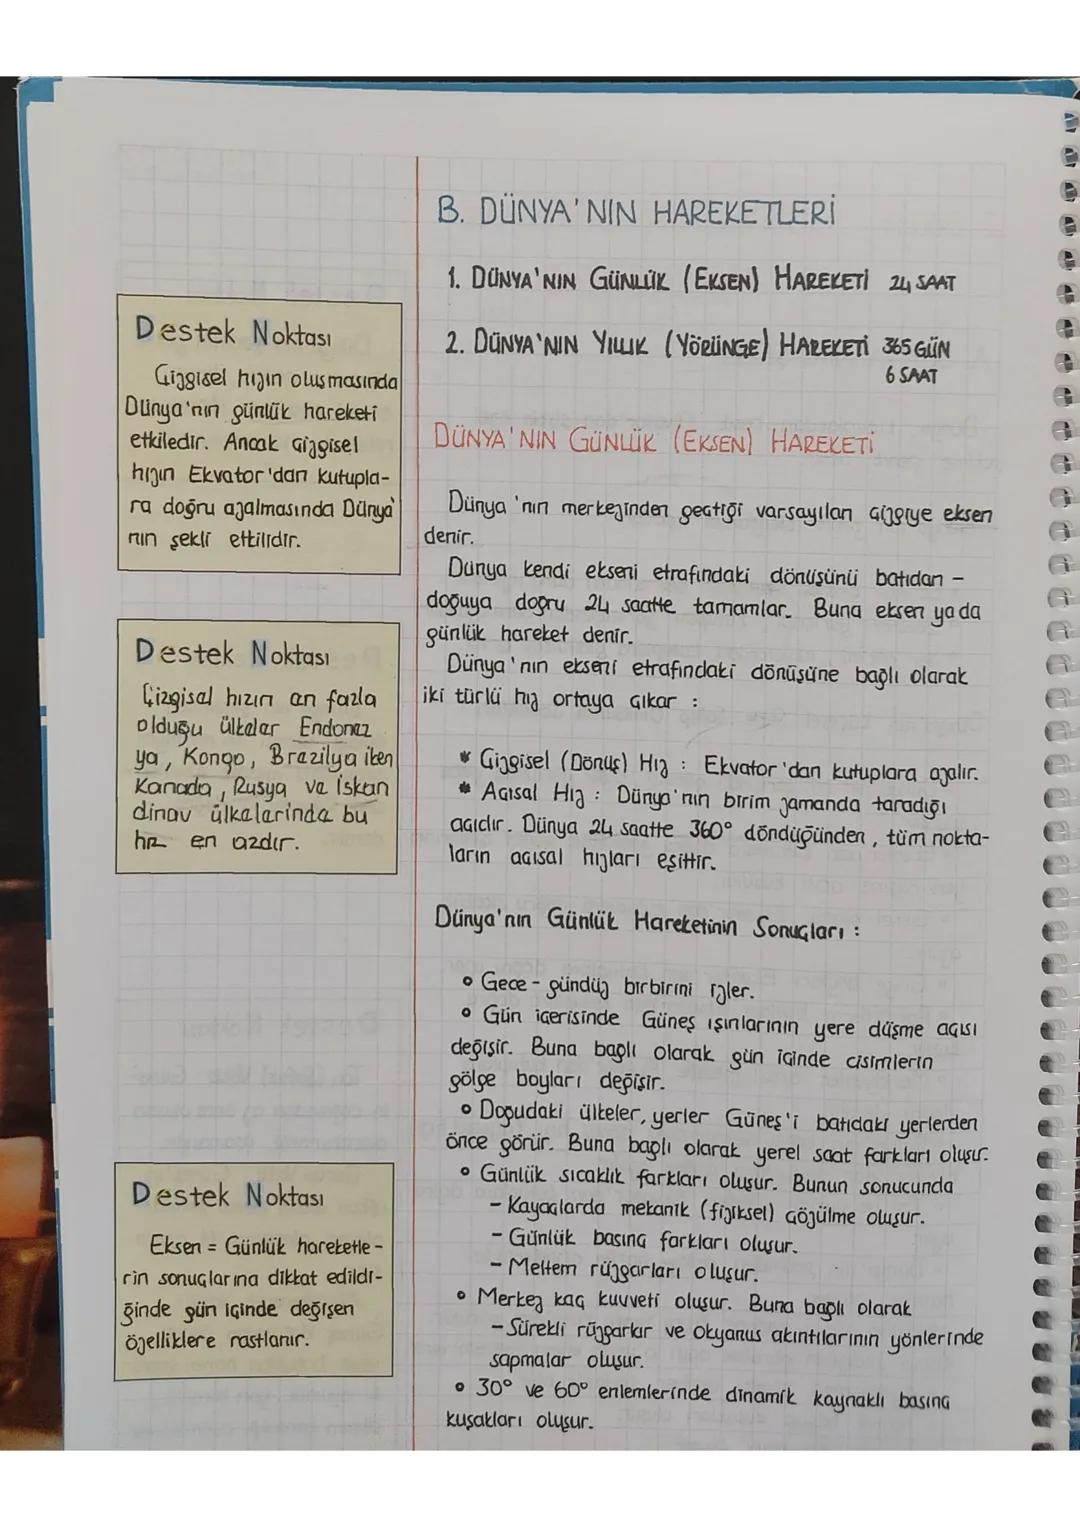 B. DÜNYA'NIN HAREKETLERİ
1. DÜNYA'NIN GÜNLÜK (EKSEN) HAREKETİ 24 SAAT
2. DÜNYA'NIN YILLIK (YÖRÜNGE) HAREKETİ 365 GÜN
6 SAAT
DÜNYA'NIN GÜNLÜK (EKSEN) HAREKETİ
Dünya'nın merkezinden geçtiği varsayılan çizgiye eksen
denir.
Dünya kendi ekseni etrafındaki dönüşünü batıdan -
doğuya doğru 24 saatte tamamlar. Buna eksen ya da
günlük hareket denir.
Dünya'nın ekseni etrafındaki dönüşüne bağlı olarak
iki türlü hız ortaya çıkar :
* Çizgisel (Dönüş) Hız : Ekvator'dan kutuplara azalır.
* Açısal Hız : Dünya'nın birim zamanda taradığı
açıdır. Dünya 24 saatte 360° döndüğünden, tüm nokta-
ların açısal hızları eşittir.
Dünya'nın Günlük Hareketinin Sonuçları :
° Gece - gündüz birbirini izler.
° Gün içerisinde Güneş ışınlarının yere düşme açısı
değişir. Buna bağlı olarak gün içinde cisimlerin
gölge boyları değişir.
° Doğudaki ülkeler, yerler Güneş'i batıdaki yerlerden
önce görür. Buna bağlı olarak yerel saat farkları oluşur.
° Günlük sıcaklık farkları oluşur. Bunun sonucunda
- Kayaçlarda mekanik (fiziksel) çözülme oluşur.
- Günlük basınç farkları oluşur.
- Meltem rüzgarları oluşur.
° Merkez kaç kuvveti oluşur. Buna bağlı olarak
- Sürekli rüzgarlar ve okyanus akıntılarının yönlerinde
sapmalar oluşur.
° 30° ve 60° enlemlerinde dinamik kaynaklı basınç
kuşakları oluşur.
Destek Noktası
Çizgisel hızın oluşmasında
Dünya'nın günlük hareketi
etkiledir. Ancak çizgisel
hızın Ekvator'dan kutupla-
ra doğru azalmasında Dünya'
nın şekli etkilidir.
Destek Noktası
Çizgisal hızın an fazla
olduğu ülkalar Endonaz
ya, Kongo, Brazilya iken
Kanada, Rusya va İskan
dinav ülkalarinda bu
hız en azdır.
Destek Noktası
Eksen = Günlük hareketle-
rin sonuçlarına dikkat edildi-
ğinde gün içinde değişen
özelliklere rastlanır.